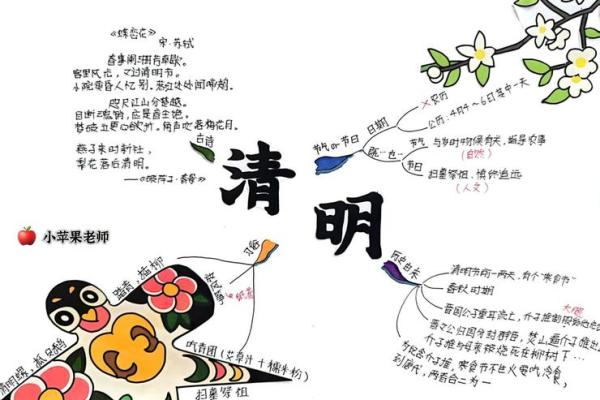 《蝶恋花》
宋·苏轼
春事阑珊芳草歇。
客里风光，又过清明节。
小院黄昏人忆别。落红处处闻啼鴂。
咫尺江山分楚越。
目断魂销，应是音尘绝。
梦破五更心欲折。角声吹落梅花月。
古诗
燕子来时新社，
梨花落后清明。
——《破阵子·春景》
节气or节日
日期
×农历
公历：4月4~6日其中一天
既…也…
节气
与岁时物候有关，指导农事
(自然)
节日
扫墓祭祖、慎终追远
(人文)
清明
小苹果老师
习俗
踏青、插柳
放风筝
纸鸢
吃青团(艾草汁+糯米粉)
扫墓祭祖
清明螺、抵只鹅
历史由来
清明节前一两天，有个"寒食节"
春秋时期
大腿
晋国公子重耳流亡，介子推割股
晋文公归国分封群臣，焚山逼介子推出
介子推与母亲被烧死在柳树下…
为纪念介子推，寒食节不生火要吃冷食，
到唐代，两者合二为一